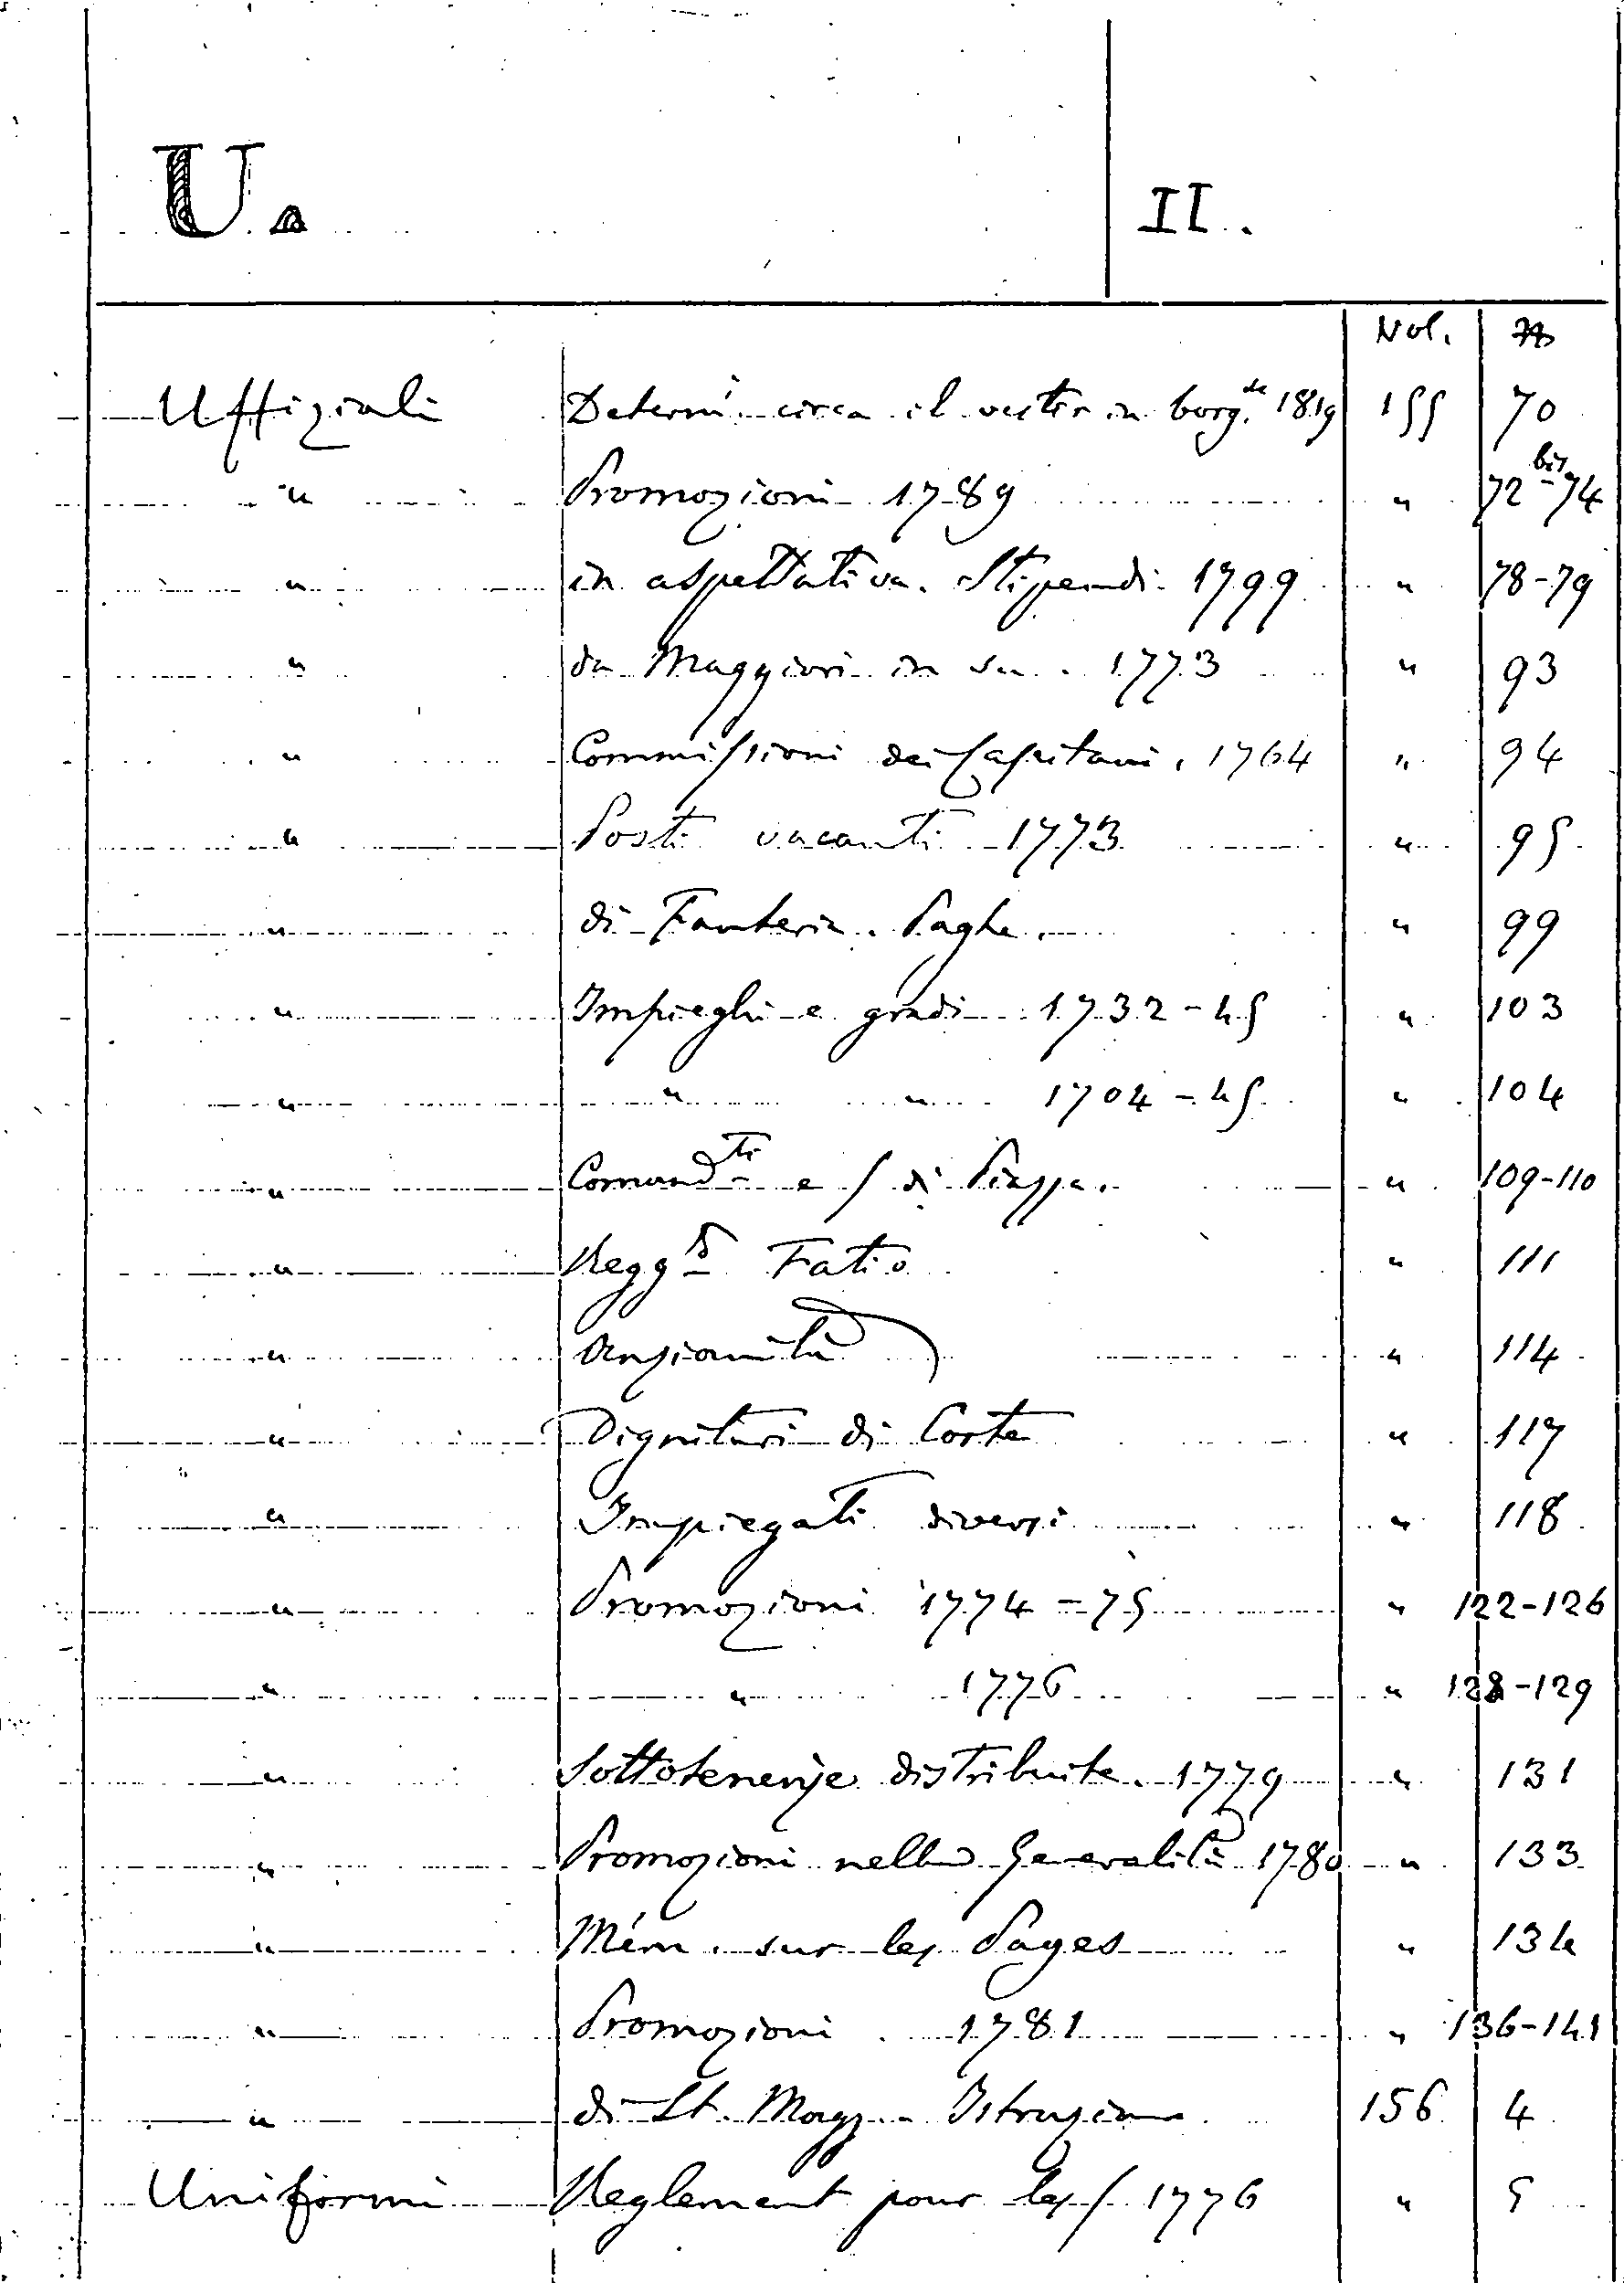 U. II.
Vol. №
Uffiziali Determ. circa il vestir in borg.se 1819 155 70
" Promozioni 1789 " 72bis-74
" in aspettativa. Stipendi 1799 " 78-79
" da Maggiori in su. 1773 " 93
" Commissioni dei Capitani, 1764 " 94
" Posti vacanti 1773 " 95
" di Fanteria. Paghe. " 99
" Impieghi e gradi 1732-45 " 103
" " " 1704-45 " 104
" Comandti e di Piazza. " 109-110
" Reggto Fatio " 111
" Anzianità " 114
" Dignitari di Corte " 117
" Impiegati diversi " 118
" Promozioni 1774-75 " 122-126
" " 1776 " 128-129
" Sottotenenze distribuite. 1779 " 131
" Promozioni nella Generalità 1780 " 133
" Mém. sur les Pages " 134
" Promozioni 1781 " 136-141
" di St. Magg. Istruzione 156 4
Uniformi Reglement pour les 1776 " 5